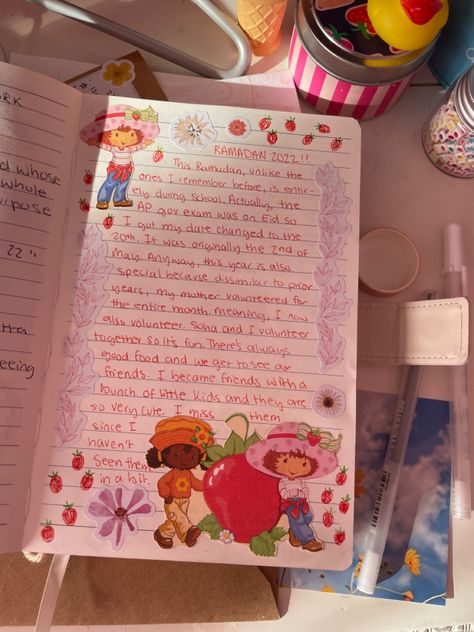 RK
d whose
whole
urpose
22"
tta
eeing
RAMADAN 2022!!
This Ramadan, unlike the
ones I remember before, is entir-
ely during school. Actually, the
AP gov exam was on Eid so
I got my date changed to the
20th. It was originally the 2nd of
May. Anyway, this year is also
special because dissimilar to prior
years, my mother volunteered for
the entire month. meaning, I now
also volunteer. Soha and I volunteer
together so it's fun. There's always
good food and we get to see our
friends. I became friends with a
bunch of little kids and they are
so very cute. I miss them
since I
haven't
seen them
in a bit.